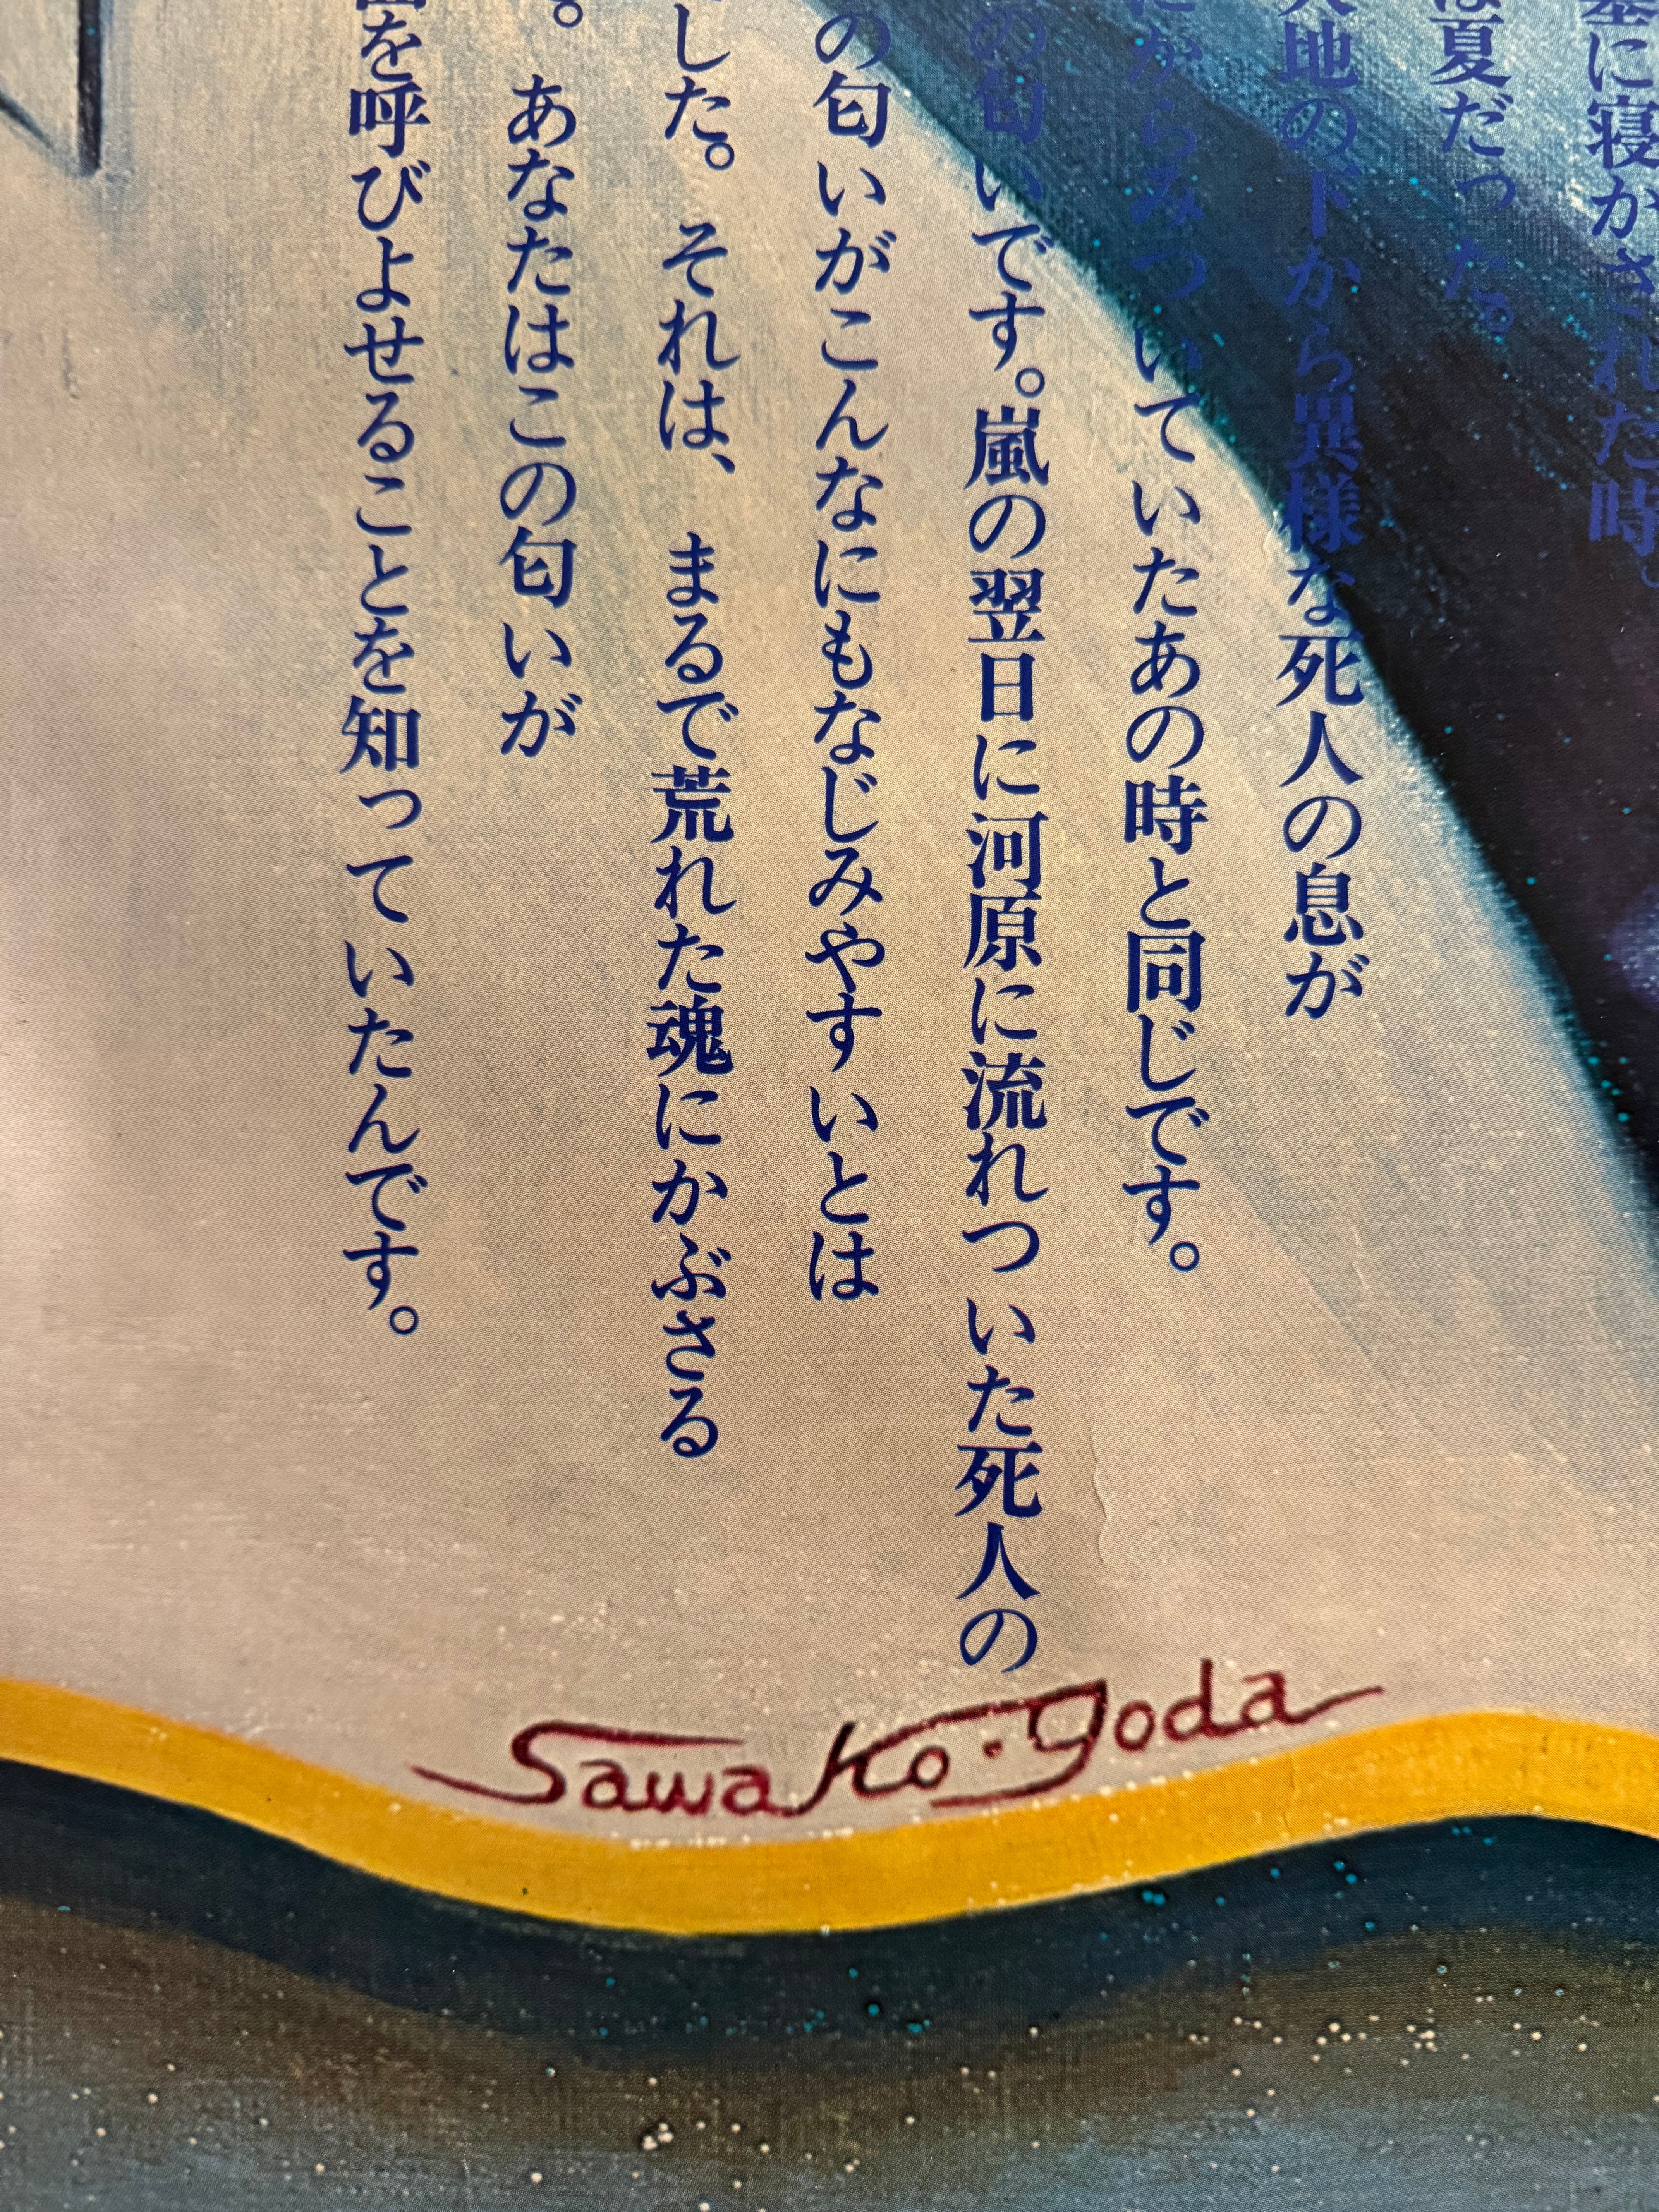 墓に寝かされた時。
は夏だった。
大地の下から異様な死人の息が
にからみついていたあの時と同じです。
の匂いです。嵐の翌日に河原に流れついた死人の
の匂いがこんなにもなじみやすいとは
した。それは、まるで荒れた魂にかぶさる
。あなたはこの匂いが
を呼びよせることを知っていたんです。
Sawako・Goda